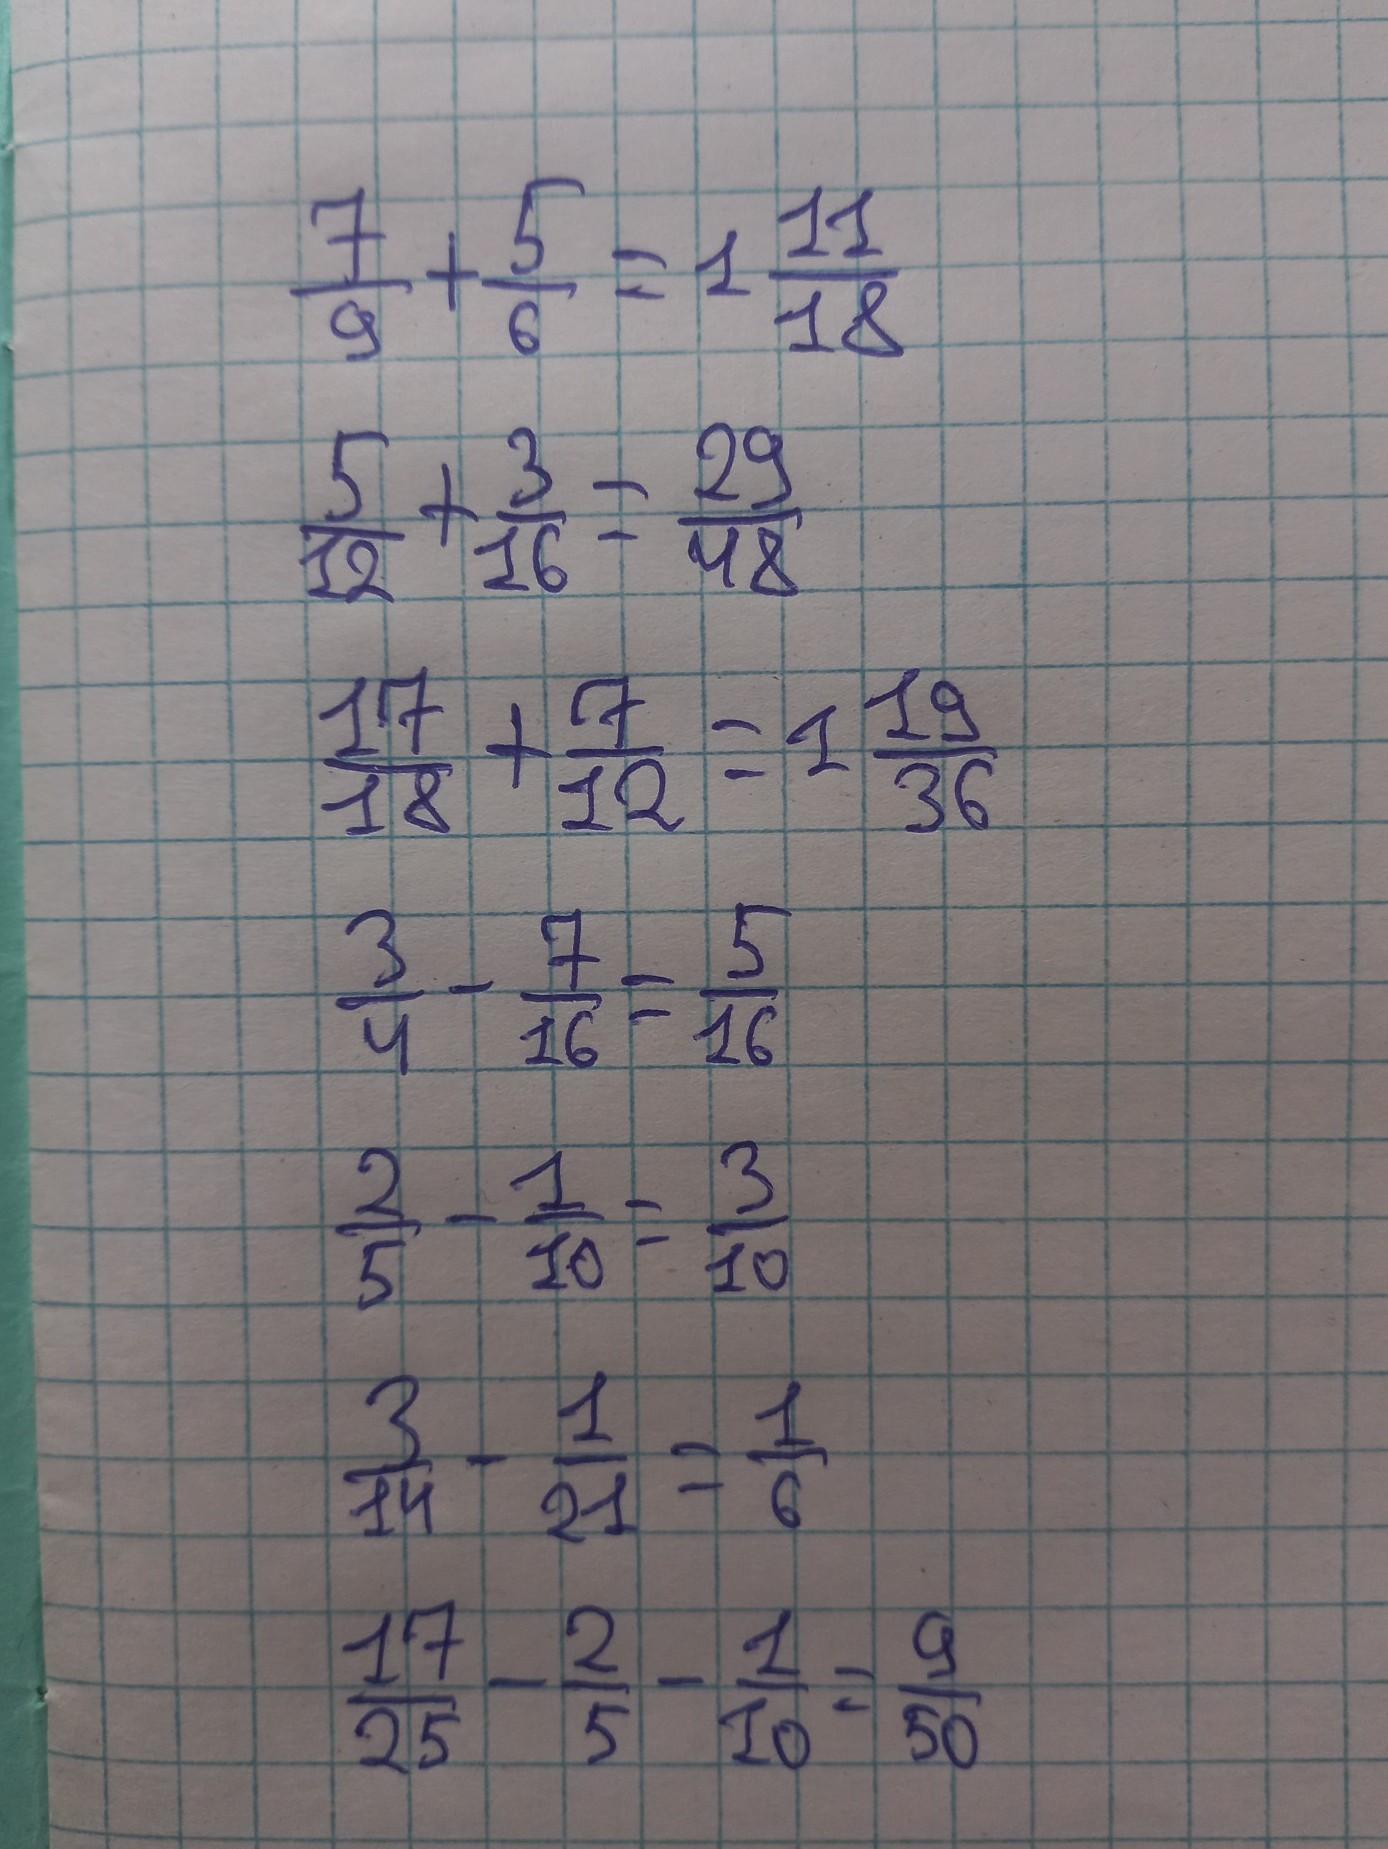 7/9 + 5/6 = 1 11/18
5/12 + 3/16 = 29/48
17/18 + 7/12 = 1 19/36
3/4 - 7/16 = 5/16
2/5 - 1/10 = 3/10
3/14 - 1/21 = 1/6
17/25 - 2/5 - 1/10 = 9/50